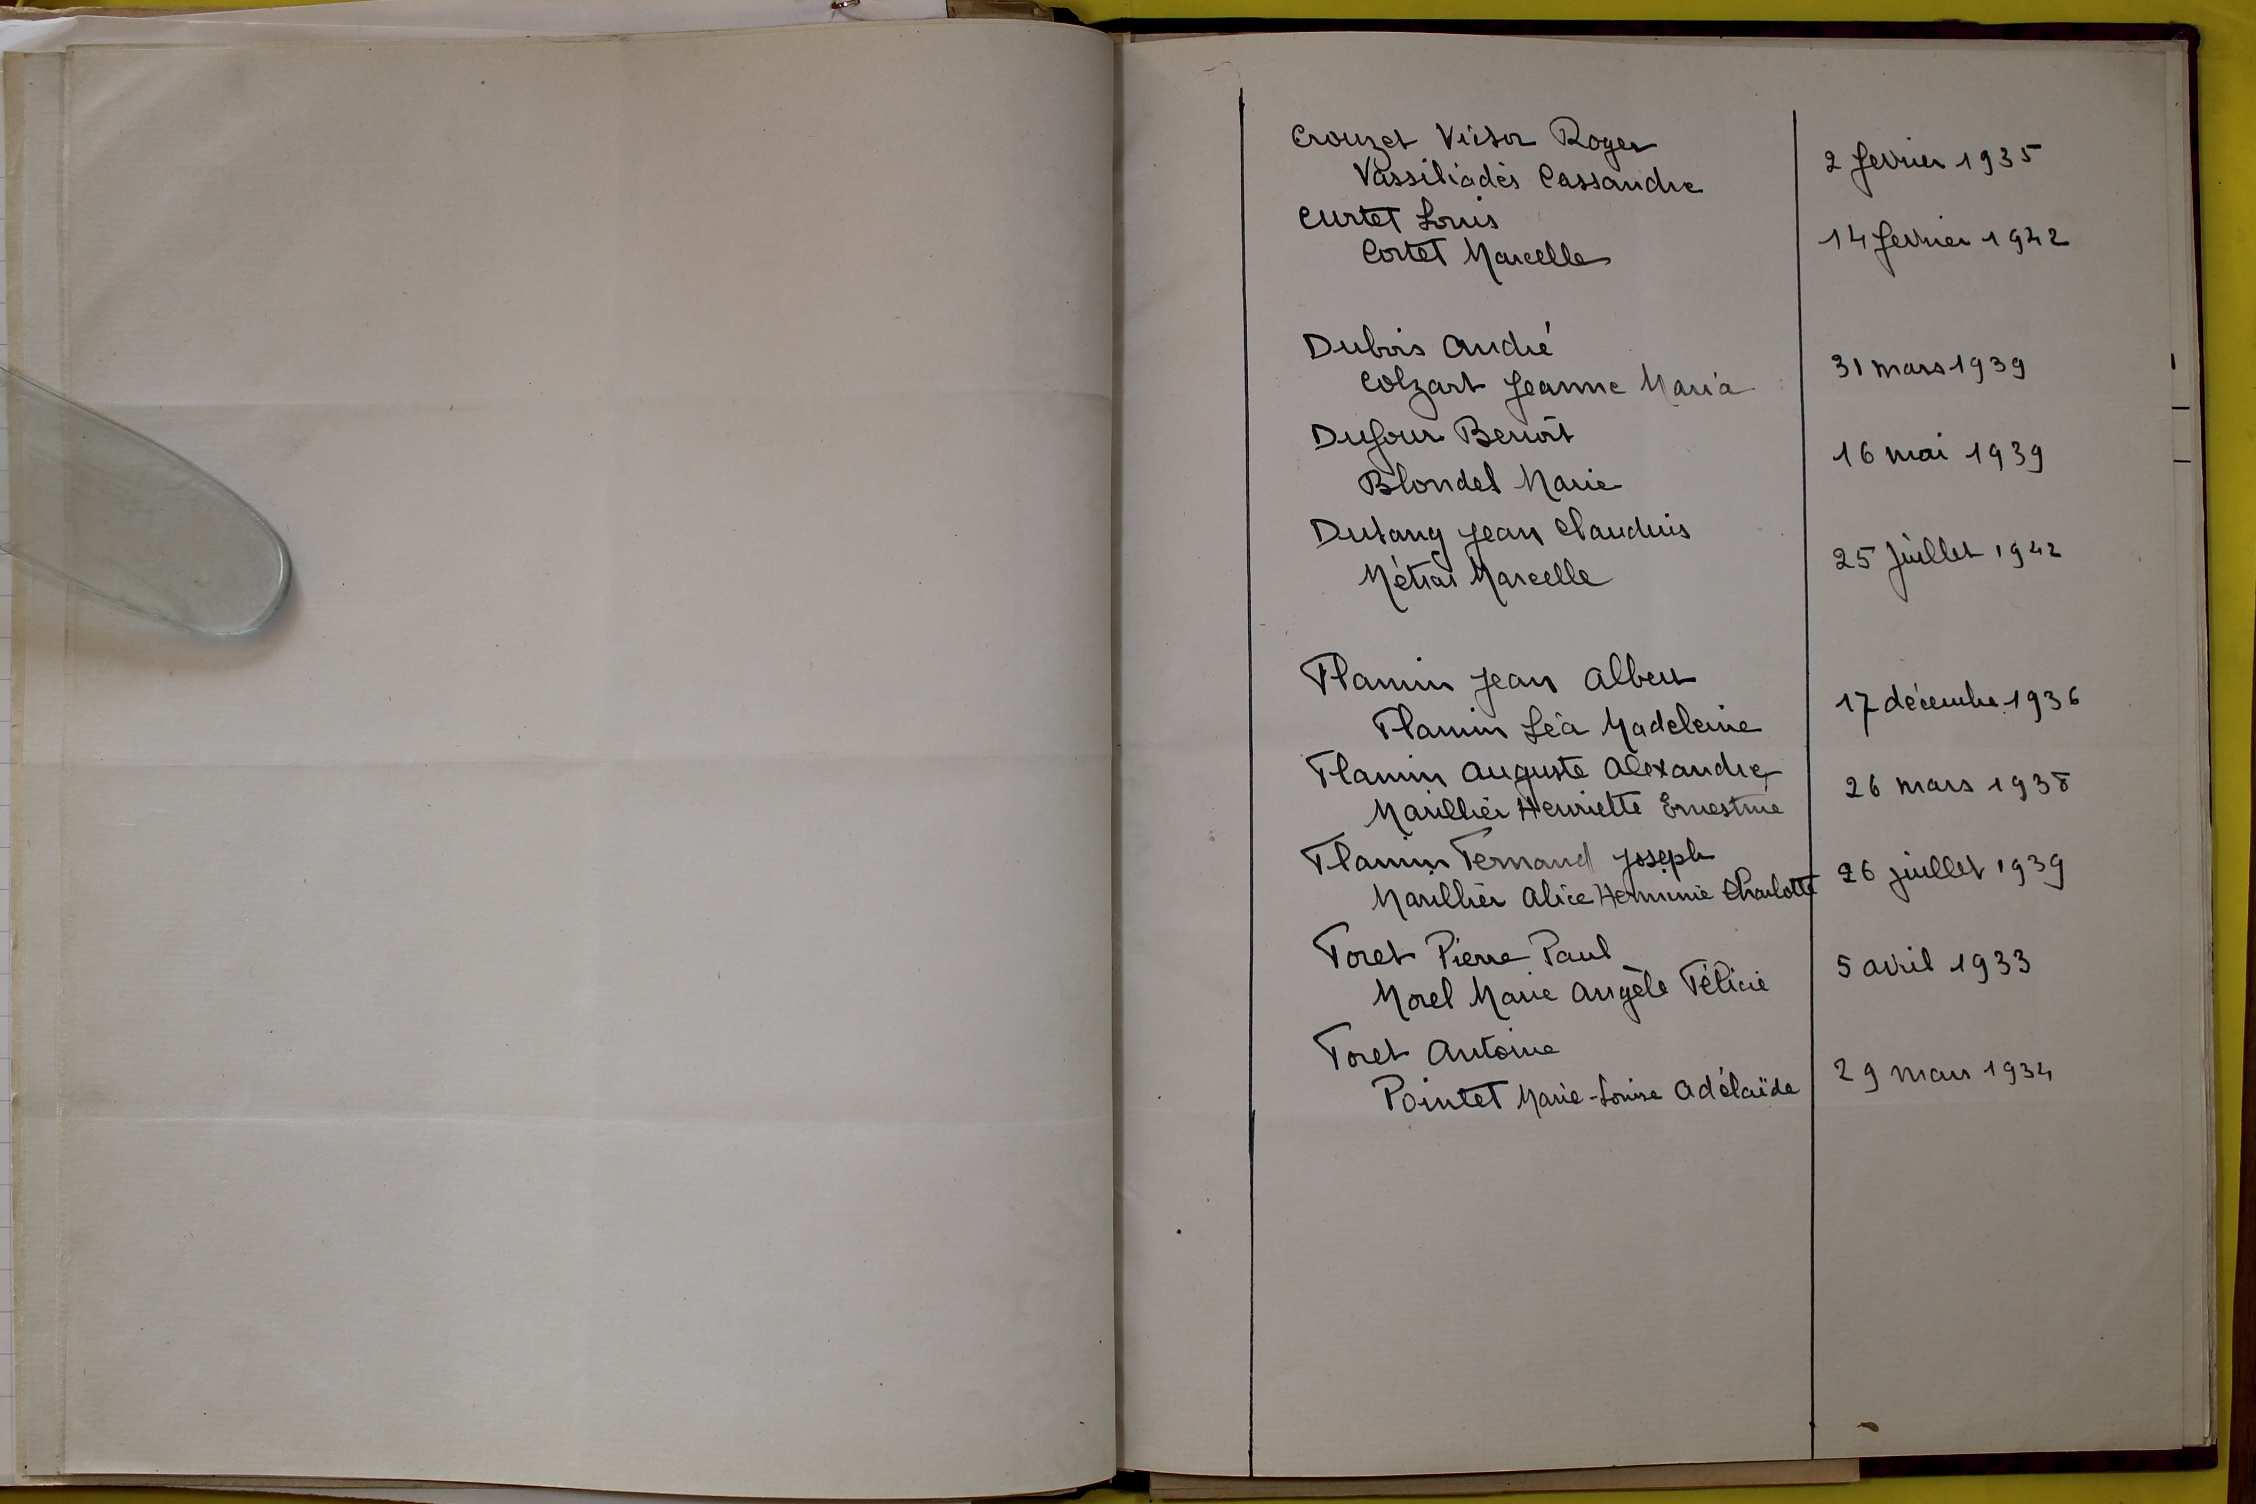 Crouzet Victor Roger
Vassiliadès Cassandre
2 fevrier 1935
Curtet Louis
Cortet Marcelle
14 fevrier 1942
Dubois André
Colzart Jeanne Maria
31 mars 1939
Dufour Benoît
Blondel Marie
16 mai 1939
Dutang Jean Claudius
Métras Marcelle
25 juillet 1942
Flamin Jean Albert
Flamin Léa Madeleine
17 décembre 1936
Flamin Auguste Alexandre
Marillier Henriette Ernestine
26 mars 1938
Flamin Fernand Joseph
Marillier Alice Herminie Charlotte
26 juillet 1939
Foret Pierre Paul
Morel Marie Angèle Félicie
5 avril 1933
Foret Antoine
Pointet Marie-Louise Adélaïde
29 mars 1934